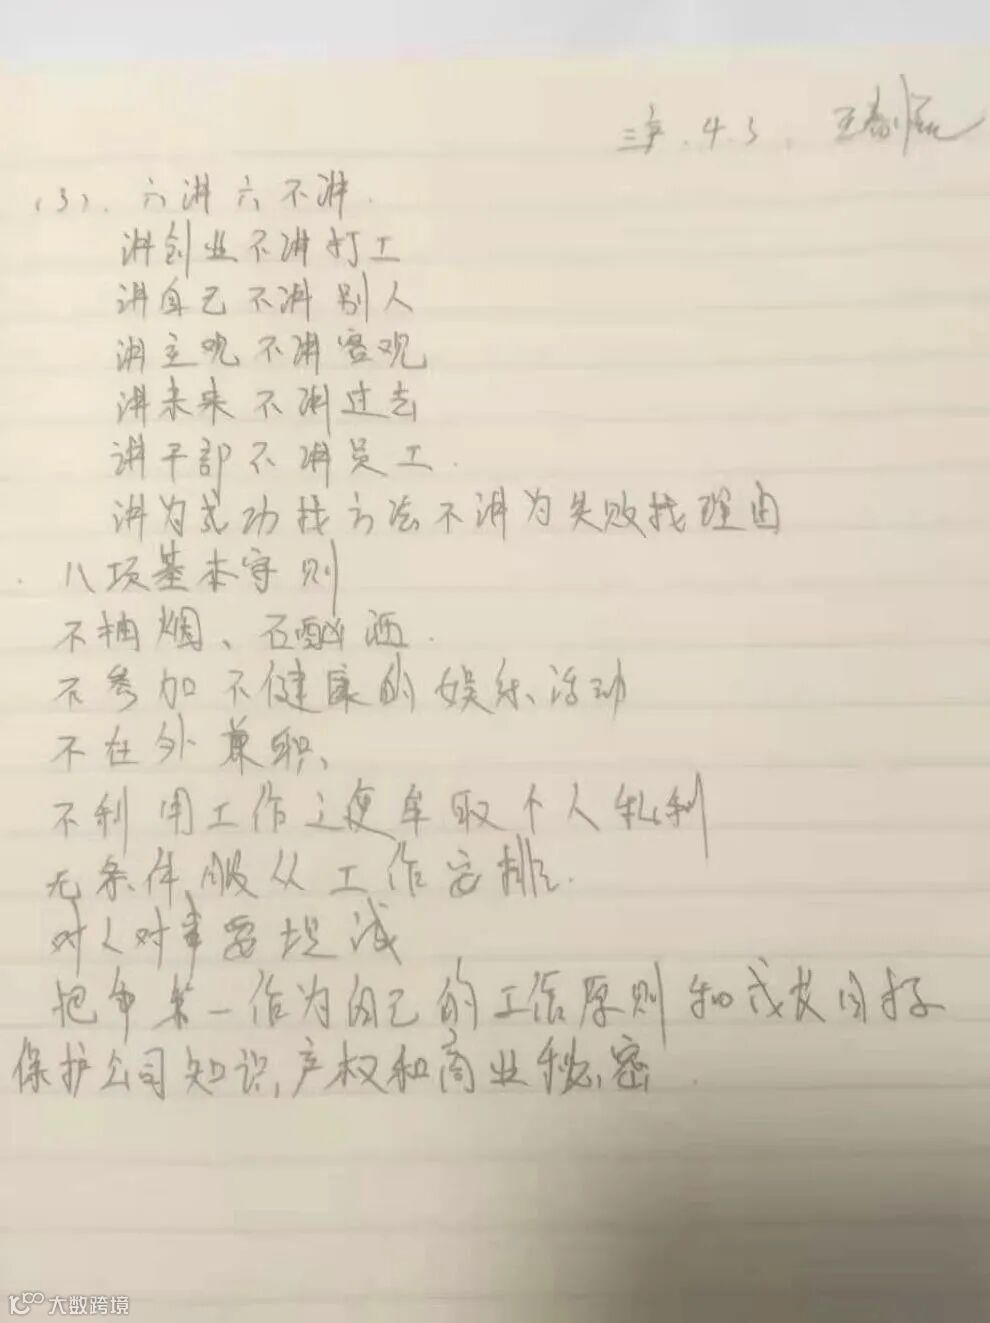 三户.4.3. 王春
(3). 六讲六不讲.
讲创业不讲打工
讲自己不讲别人
讲主观不讲客观
讲未来不讲过去
讲干部不讲员工.
讲为成功找方法不讲为失败找理由
八项基本守则
不抽烟、不酗酒.
不参加不健康的娱乐活动
不在外兼职、
不利用工作之便牟取个人私利
无条件服从工作安排.
对人对事要坦诚
把争第一作为自己的工作原则和成长目标
保护公司知识产权和商业秘密.
大数跨境